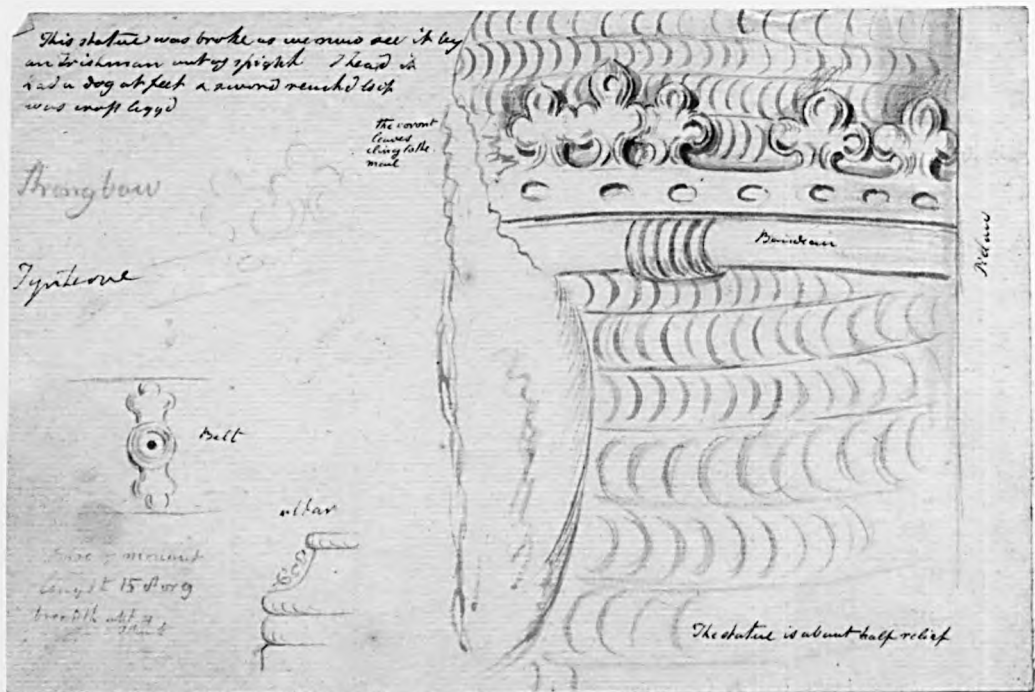 This statue was broke as we now see it by
an Irishman out of spight I heard it
had a dog at feet a sword reach'd to it
was cross legg'd
The coront
leaves
cling to the
mail
Strongbow
Belt
altar
length 15 8 or 9
breadth
The statue is about half relief